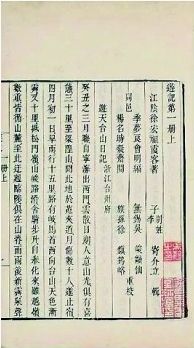 遊記第一冊上
江陰徐宏祖霞客著
季夢良會明編
同邑
楊名時凝齋閱
重校
遊天台山日記 浙江台州府
癸丑之三月晦自寧海出西門雲散日朗人意山光俱有喜
態三十里至梁隍山聞此地於菟夾道月傷數十人遂止宿
四月初一日早雨行十五里路有岐馬首西向台山天色漸
霽又十里抵松門嶺山峻路滑舍騎步行自奉化來雖越嶺
數重皆循山麓至此迂迴臨陟俱在山脊而雨後新霽泉聲